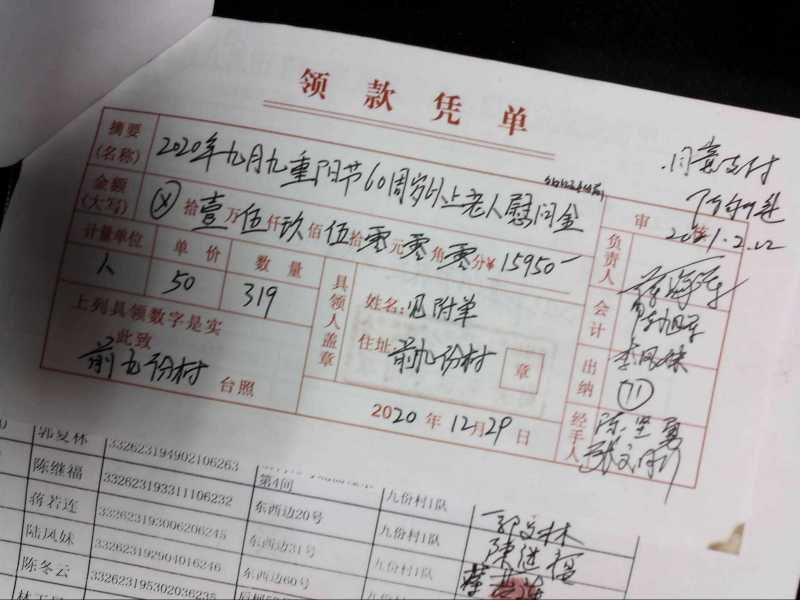 领款凭单
摘要(名称) 2020年九月九重阳节60周岁以上老人慰问金
金额(大写) ⊗拾壹万伍仟玖佰伍拾零元零角零分¥15950
计量单位 单价 数量
人 50 319
上列具领数字是实
此致
前九份村 台照
具领人盖章
姓名:见附单
住址 前九份村 章
2020年12月29日
同意支付
审
2021.2.22
负责人
会计
出纳 李凤妹
⑪
经手人 陈坚勇
郭夏林 332623194902106263 九份村1队 郭夏林
陈继福 332623193311106232 第4间 九份村1队 陳继福
蒋若连 332623193006206245 东西边20号 九份村1队
陆凤妹 332623192904016246 东西边31号 九份村1队
陈冬云 332623195302036235 东西边60号